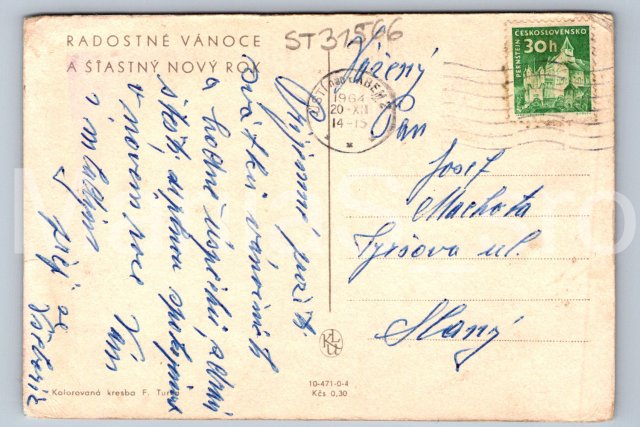 RADOSTNÉ VÁNOCE
A ŠŤASTNÝ NOVÝ ROK
ST31566
ČESKOSLOVENSKO
30h
PERNŠTEJN
ÚSTÍ NAD LABEM 2
1964
20-XII
14-15
Vážený
Pan
Josef
Machota
Tyršova ul.
Slaný
Příjemné prožití
svátků vánočních
a hodně úspěchů,
štěstí,
v novém roce Vám
přejí
Kolorovaná kresba F.
10-471-0-4
Kčs 0,30